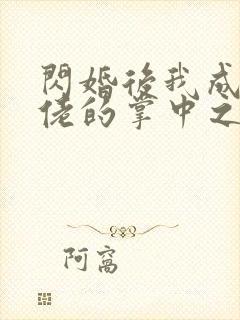 閃婚後我成
佬的掌中之
阿窩